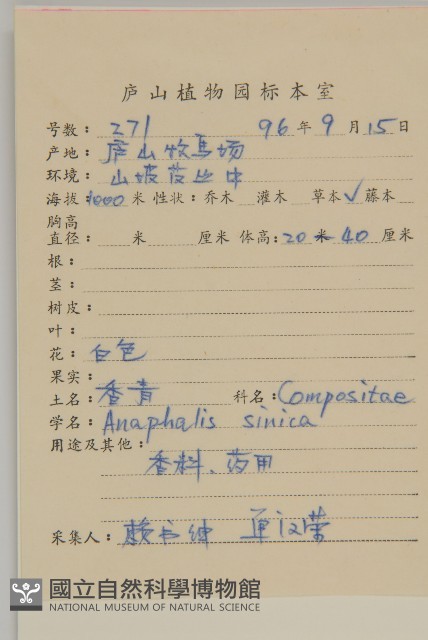 庐山植物园标本室
号数：271 96年9月15日
产地：庐山牧马场
环境：山坡草丛中
海拔：1000米 性状：乔木 灌木 草本✓藤本
胸高
直径： 米 厘米 体高：20米 40厘米
根：
茎：
树皮：
叶：
花：白色
果实：
土名：香青 科名：Compositae
学名：Anaphalis sinica
用途及其他：
香料、药用
采集人：赖书绅 单汉荣
國立自然科學博物館
NATIONAL MUSEUM OF NATURAL SCIENCE